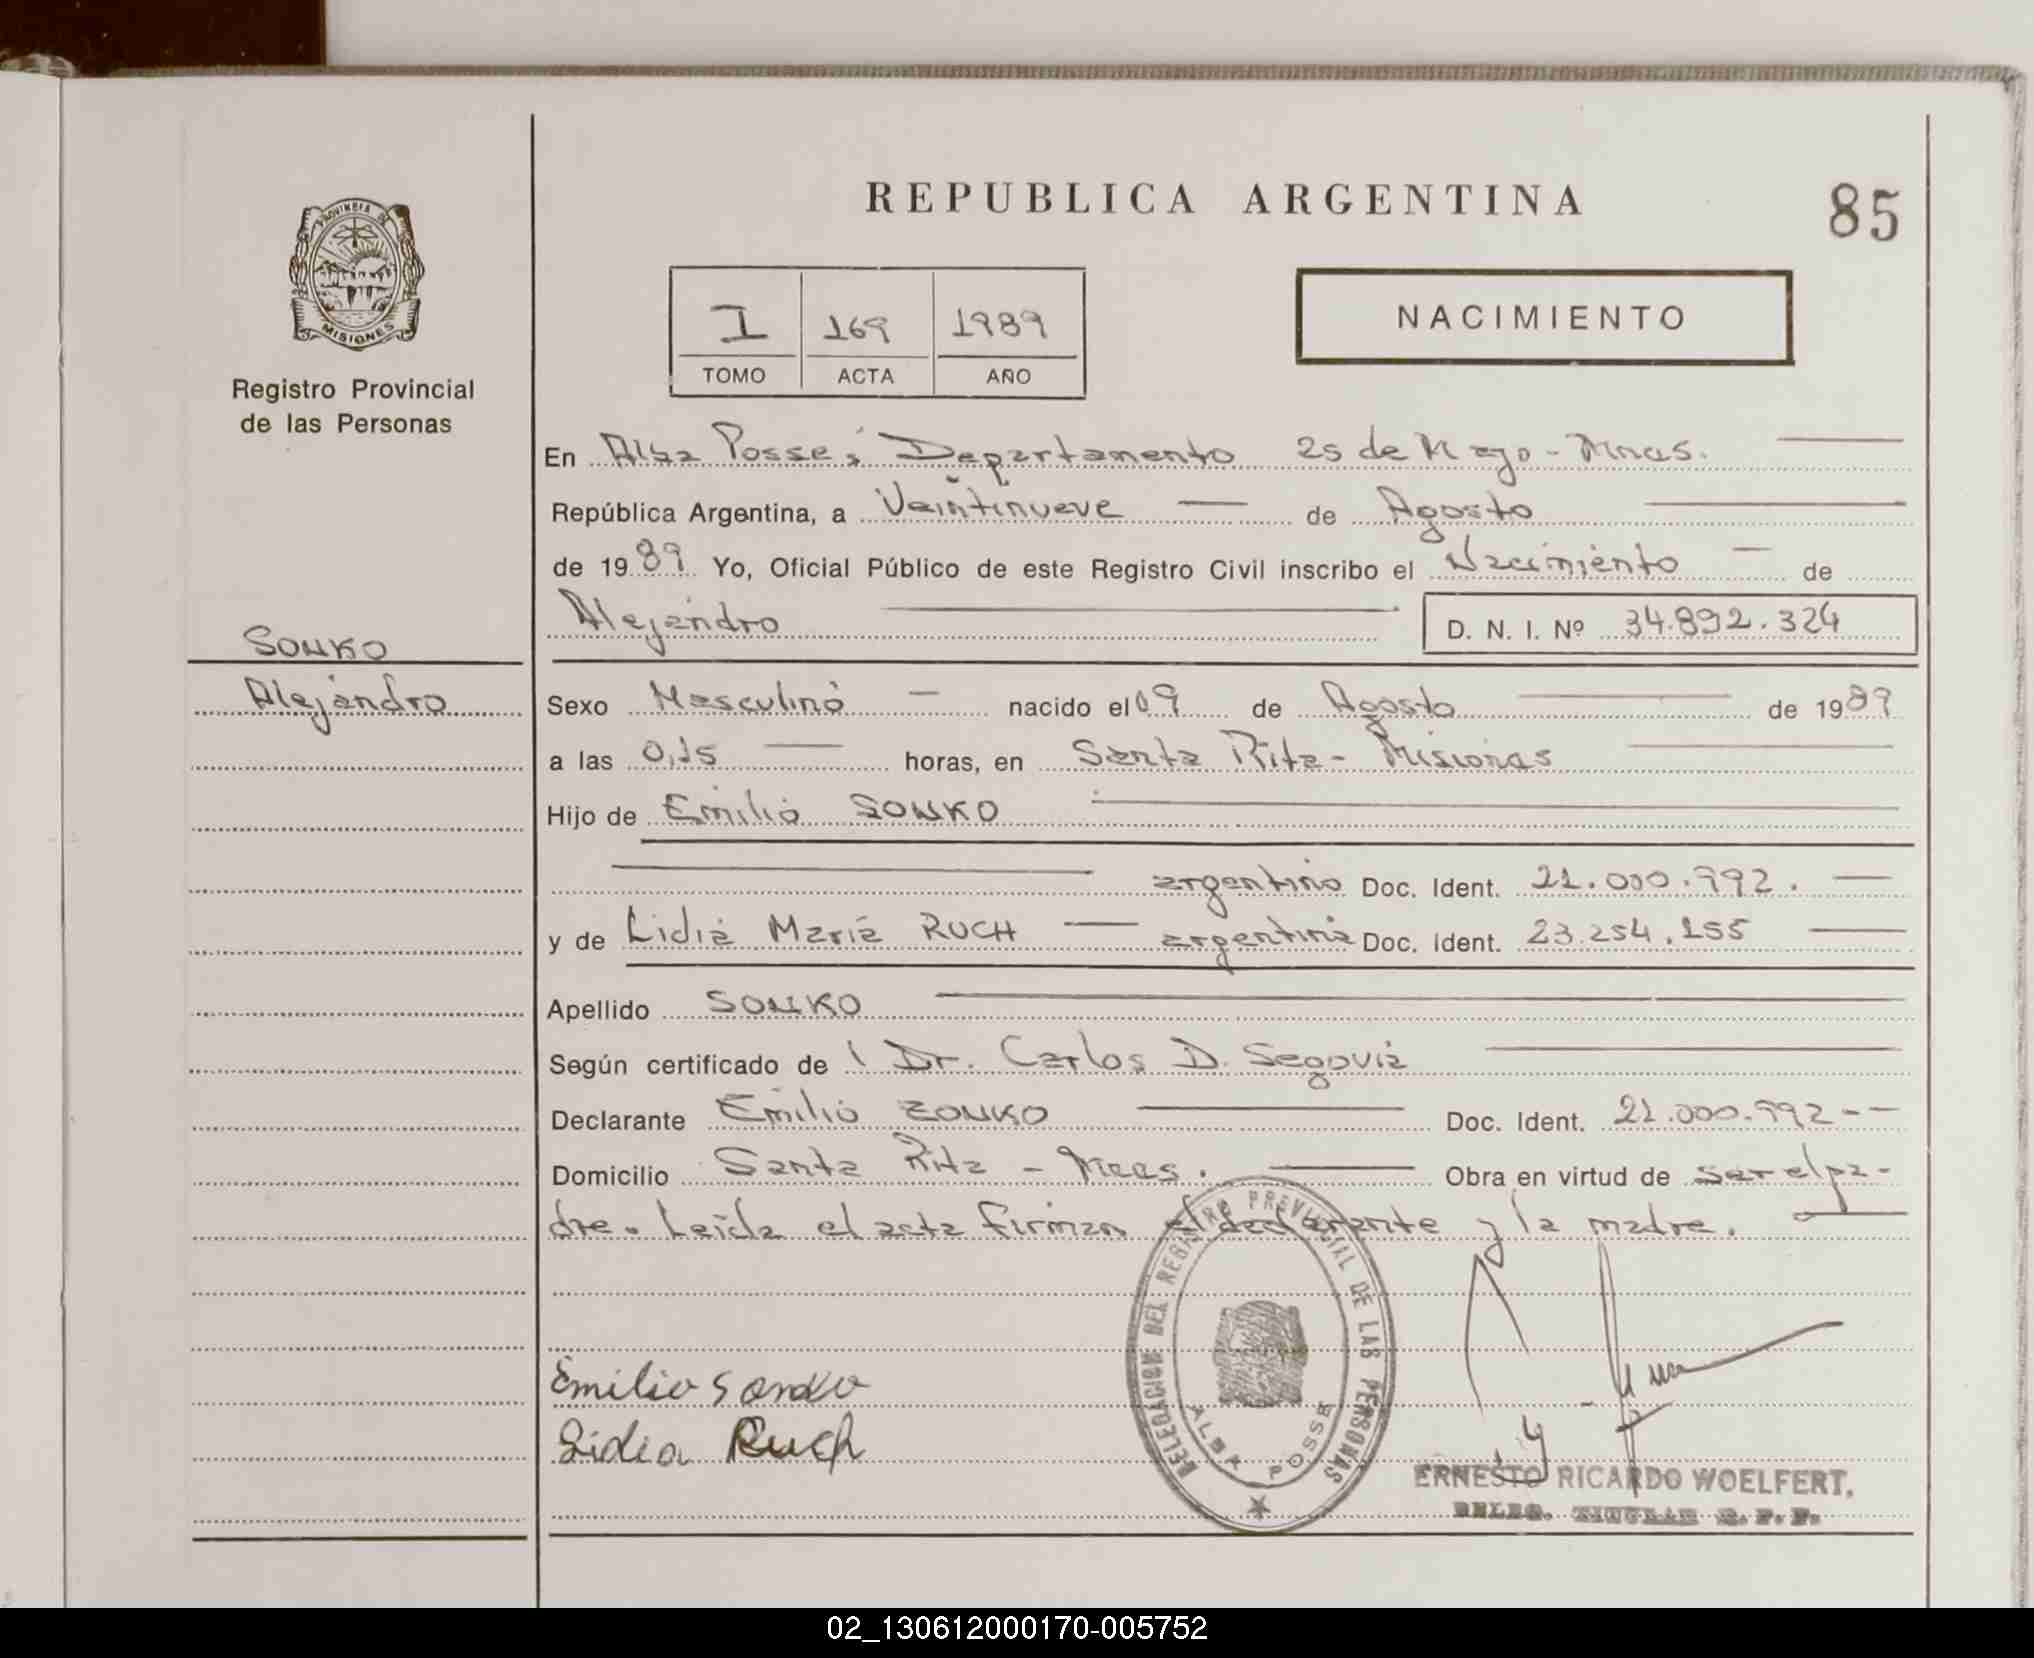 REPUBLICA ARGENTINA
85
PROVINCIA DE
MISIONES
Registro Provincial
de las Personas
I 169 1989
TOMO ACTA AÑO
NACIMIENTO
En Alba Posse, Departamento 25 de Mayo - Mnes.
República Argentina, a Veintinueve — de Agosto
de 1989 Yo, Oficial Público de este Registro Civil inscribo el Nacimiento — de
Alejandro D. N. I. Nº 34.892.324
SONKO
Alejandro
Sexo Masculino — nacido el 09 de Agosto de 1989
a las 0,15 — horas, en Santa Rita - Misiones
Hijo de Emilio SONKO
argentino Doc. Ident. 21.000.992. —
y de Lidia María RUCH — argentina Doc. Ident. 23.254.155 —
Apellido SONKO
Según certificado de Dr. Carlos D. Segovia
Declarante Emilio ZONKO — Doc. Ident. 21.000.992 --
Domicilio Santa Rita - Mnes. — Obra en virtud de ser el pa-
dre. Leída el acta firman el declarante y la madre.
Emilio Sonko
Lidia Ruch
DELEGACION DEL REGISTRO PROVINCIAL DE LAS PERSONAS
ALBA POSSE
ERNESTO RICARDO WOELFERT,
DELEG. TITULAR R. P. P.
02_130612000170-005752